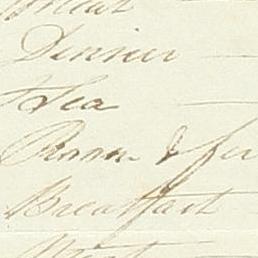 Dinner
Tea
Room & fir
Breakfast